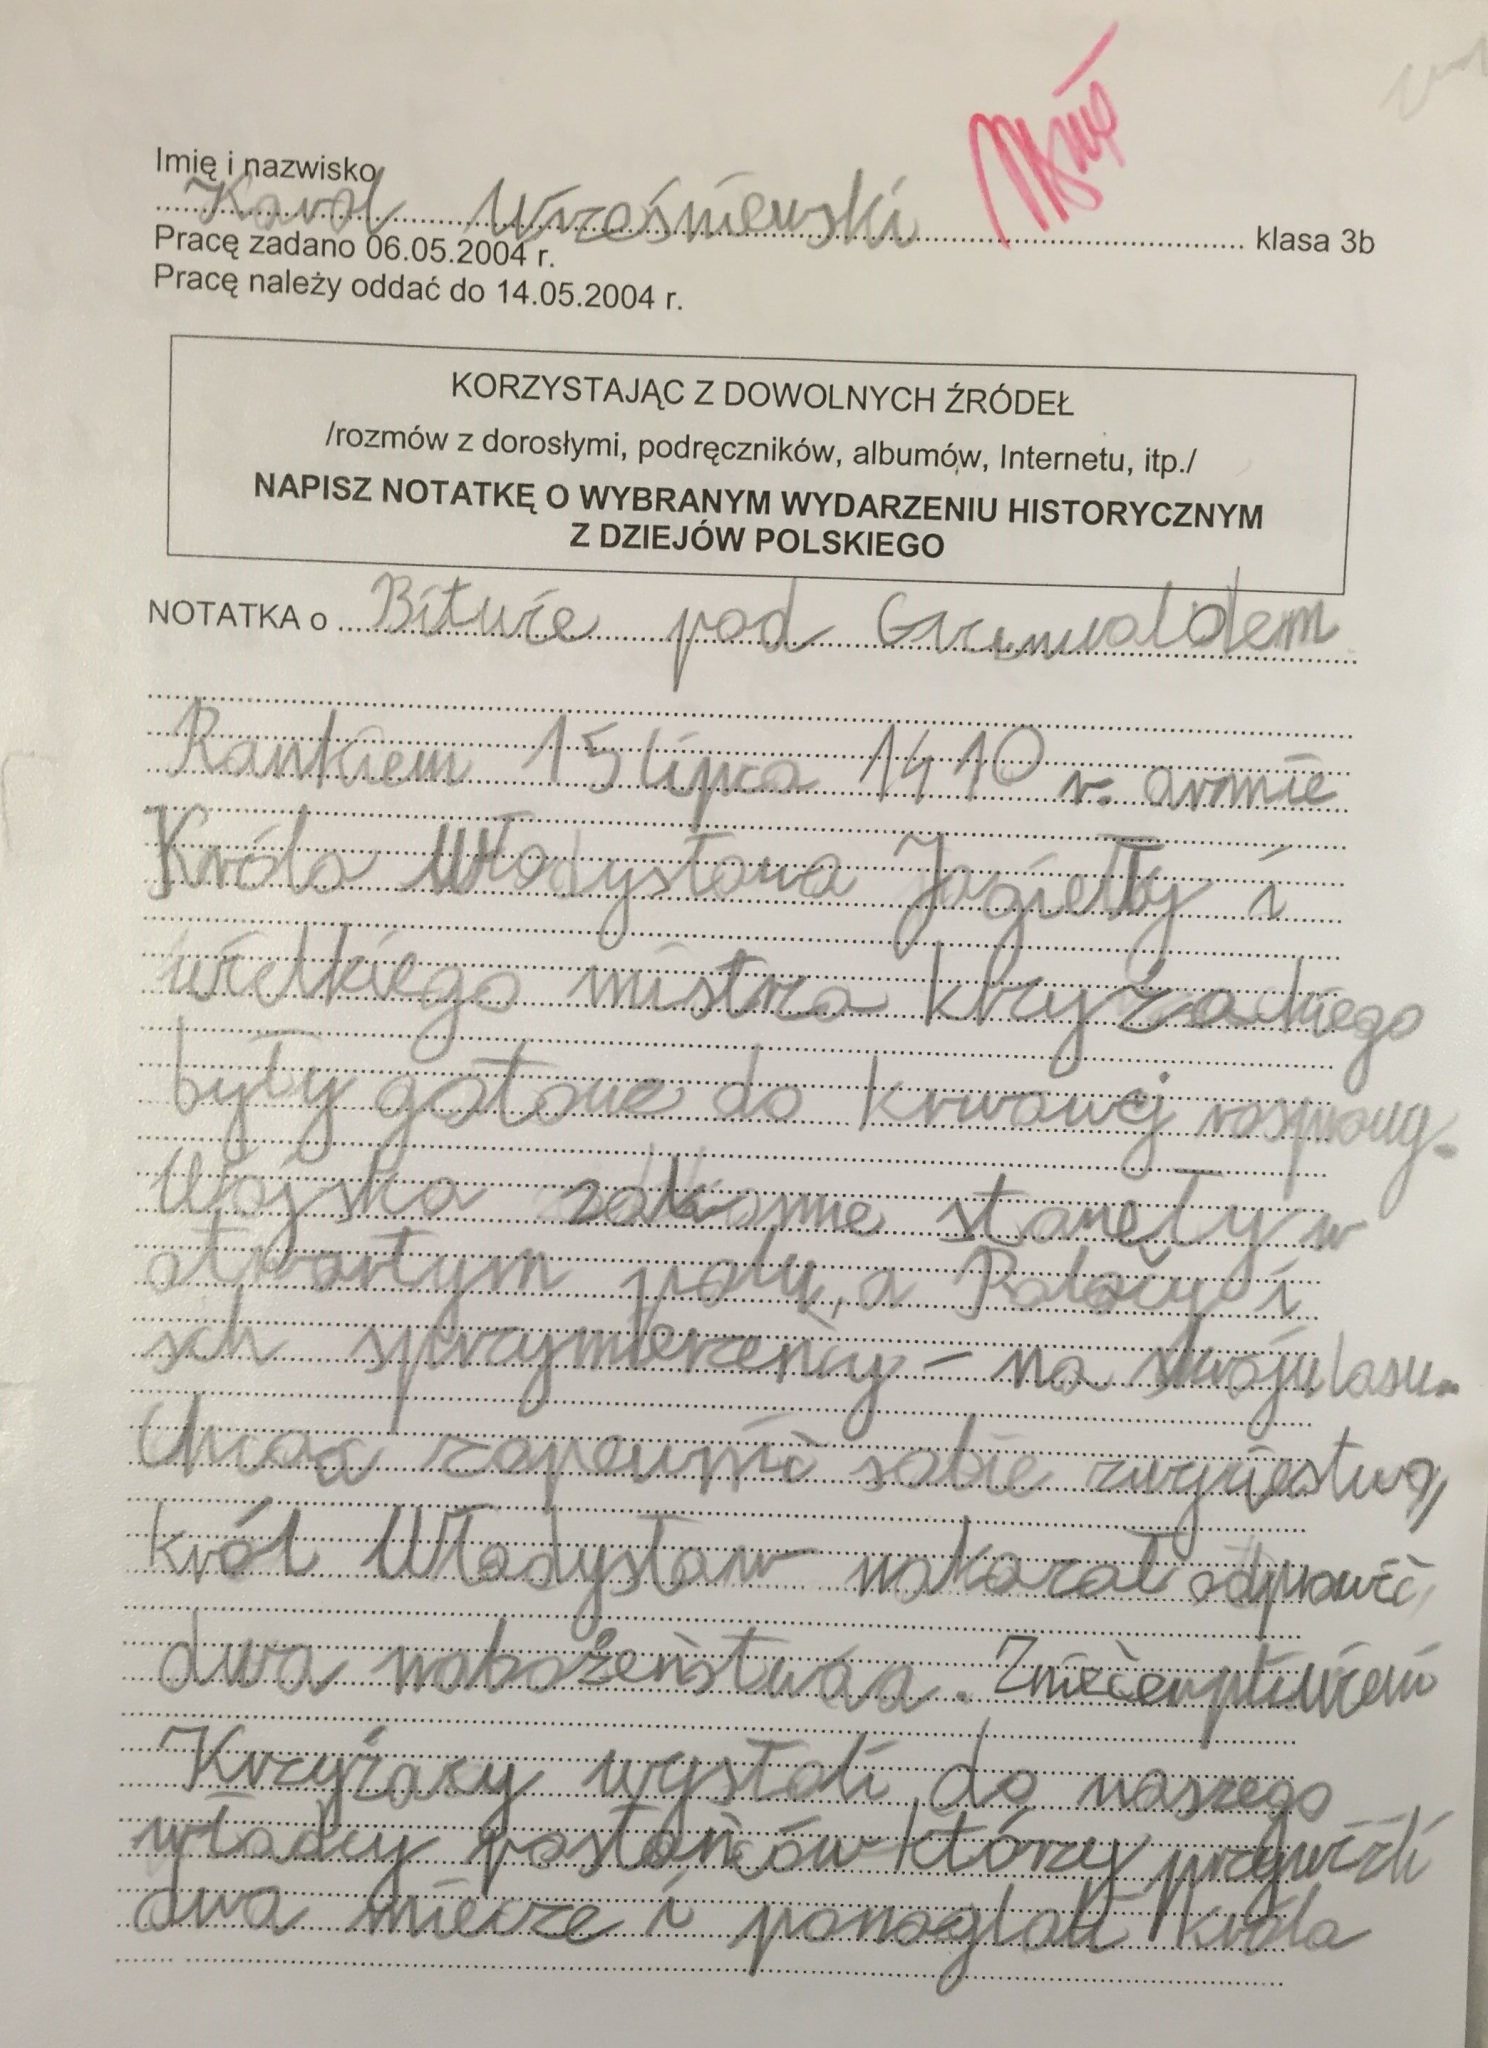 Imię i nazwisko
Karol Wrześniewski klasa 3b
Pracę zadano 06.05.2004 r.
Pracę należy oddać do 14.05.2004 r.
KORZYSTAJĄC Z DOWOLNYCH ŹRÓDEŁ
/rozmów z dorosłymi, podręczników, albumów, Internetu, itp./
NAPISZ NOTATKĘ O WYBRANYM WYDARZENIU HISTORYCZNYM
Z DZIEJÓW POLSKIEGO
NOTATKA o Bitwie pod Grunwaldem
Rankiem 15 lipca 1410 r. armie
Króla Władysława Jagiełły i
wielkiego mistrza krzyżackiego
były gotowe do krwawej rosprawy.
Wojska zakonne stanęły w
otwartym polu, a Polacy i
ich sprzymierzeńcy – na skraju lasu.
Chcąc zapewnić sobie zwycięstwo,
król Władysław nakazał odprawić
dwa nabożeństwa a. Zniecierpliwieni
Krzyżacy wysłali do naszego
władcy posłańców którzy przywieźli
dwa miecze i ponaglali króla